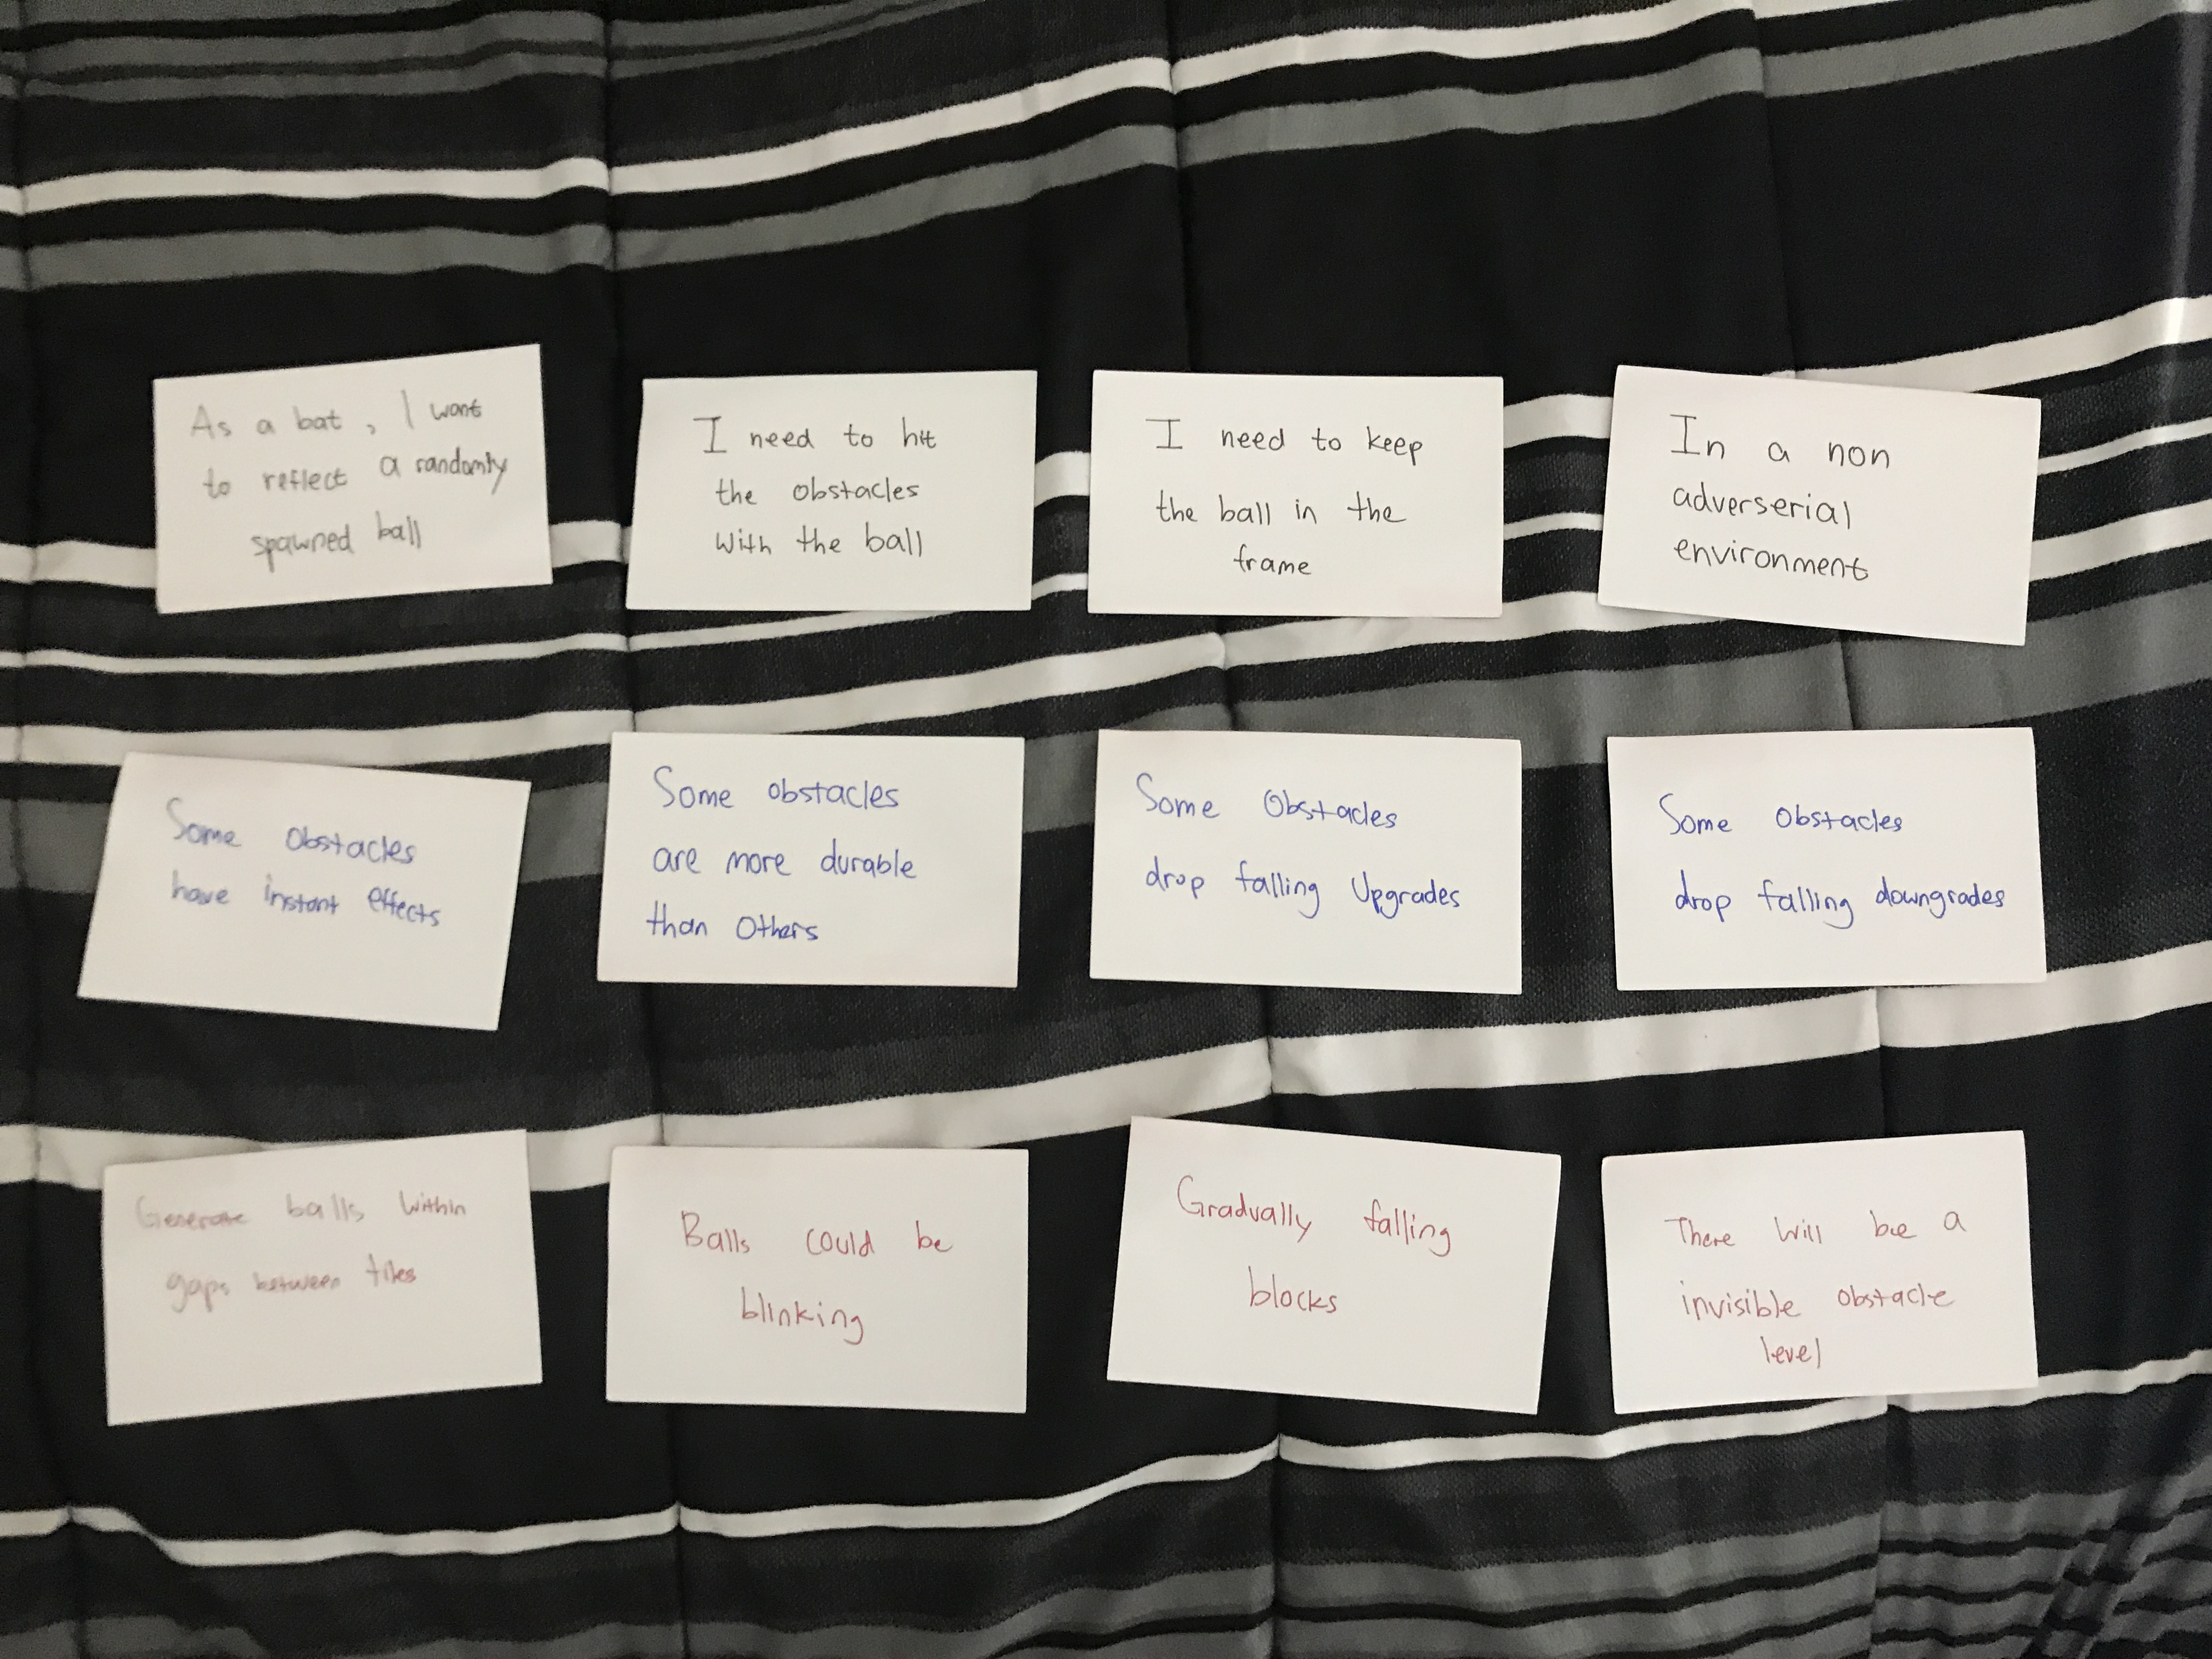 As a bat, I want
to reflect a randomly
spawned ball
I need to hit
the obstacles
with the ball
I need to keep
the ball in the
frame
In a non
adverserial
environment
Some Obstacles
have instant effects
Some obstacles
are more durable
than Others
Some Obstacles
drop falling Upgrades
Some Obstacles
drop falling downgrades
Generate balls Within
gaps between tiles
Balls could be
blinking
Gradually falling
blocks
There Will be a
invisible obstacle
level